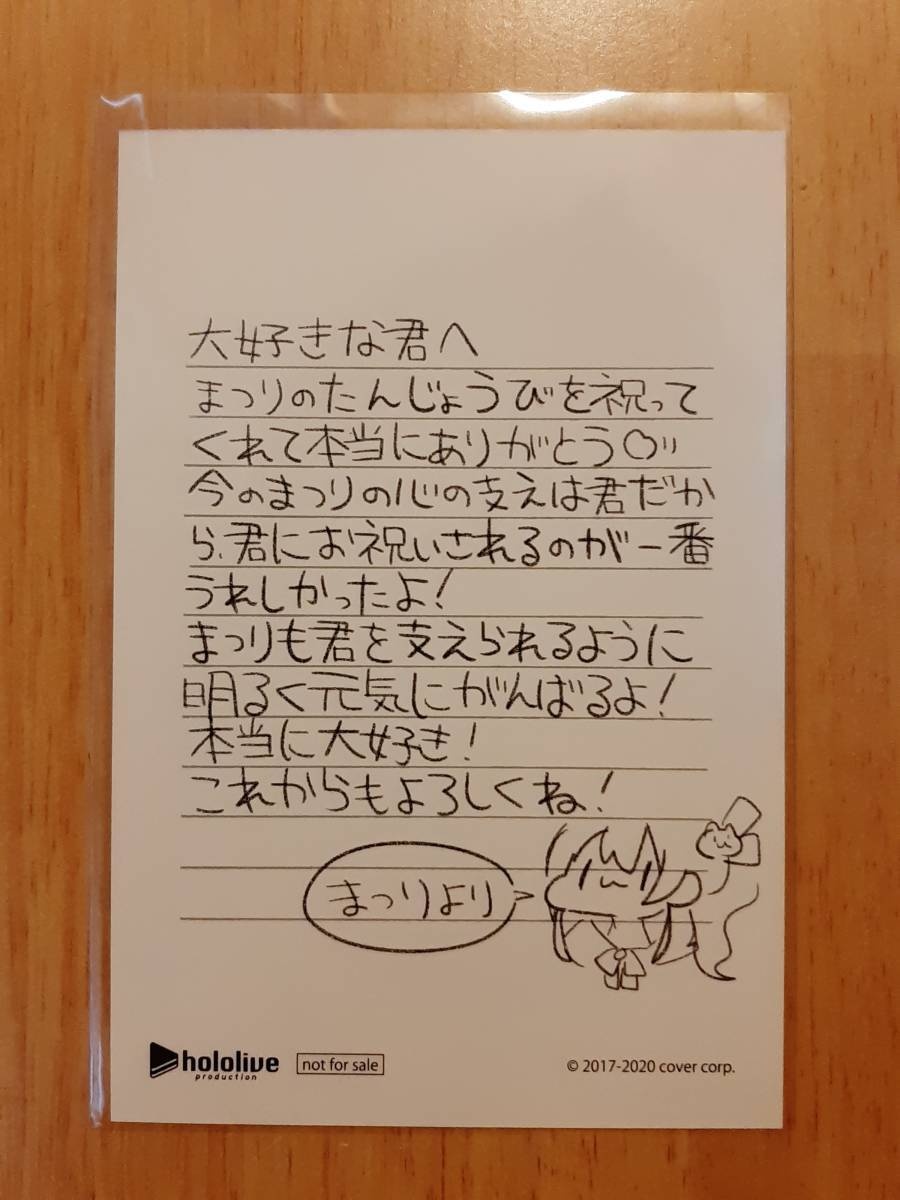 大好きな君へ
まつりのたんじょうびを祝って
くれて本当にありがとう○〃
今のまつりの心の支えは君だか
ら、君にお祝いされるのが一番
うれしかったよ!
まつりも君を支えられるように
明るく元気にがんばるよ!
本当に大好き!
これからもよろしくね!
まつりより
hololive
production
not for sale
© 2017-2020 cover corp.